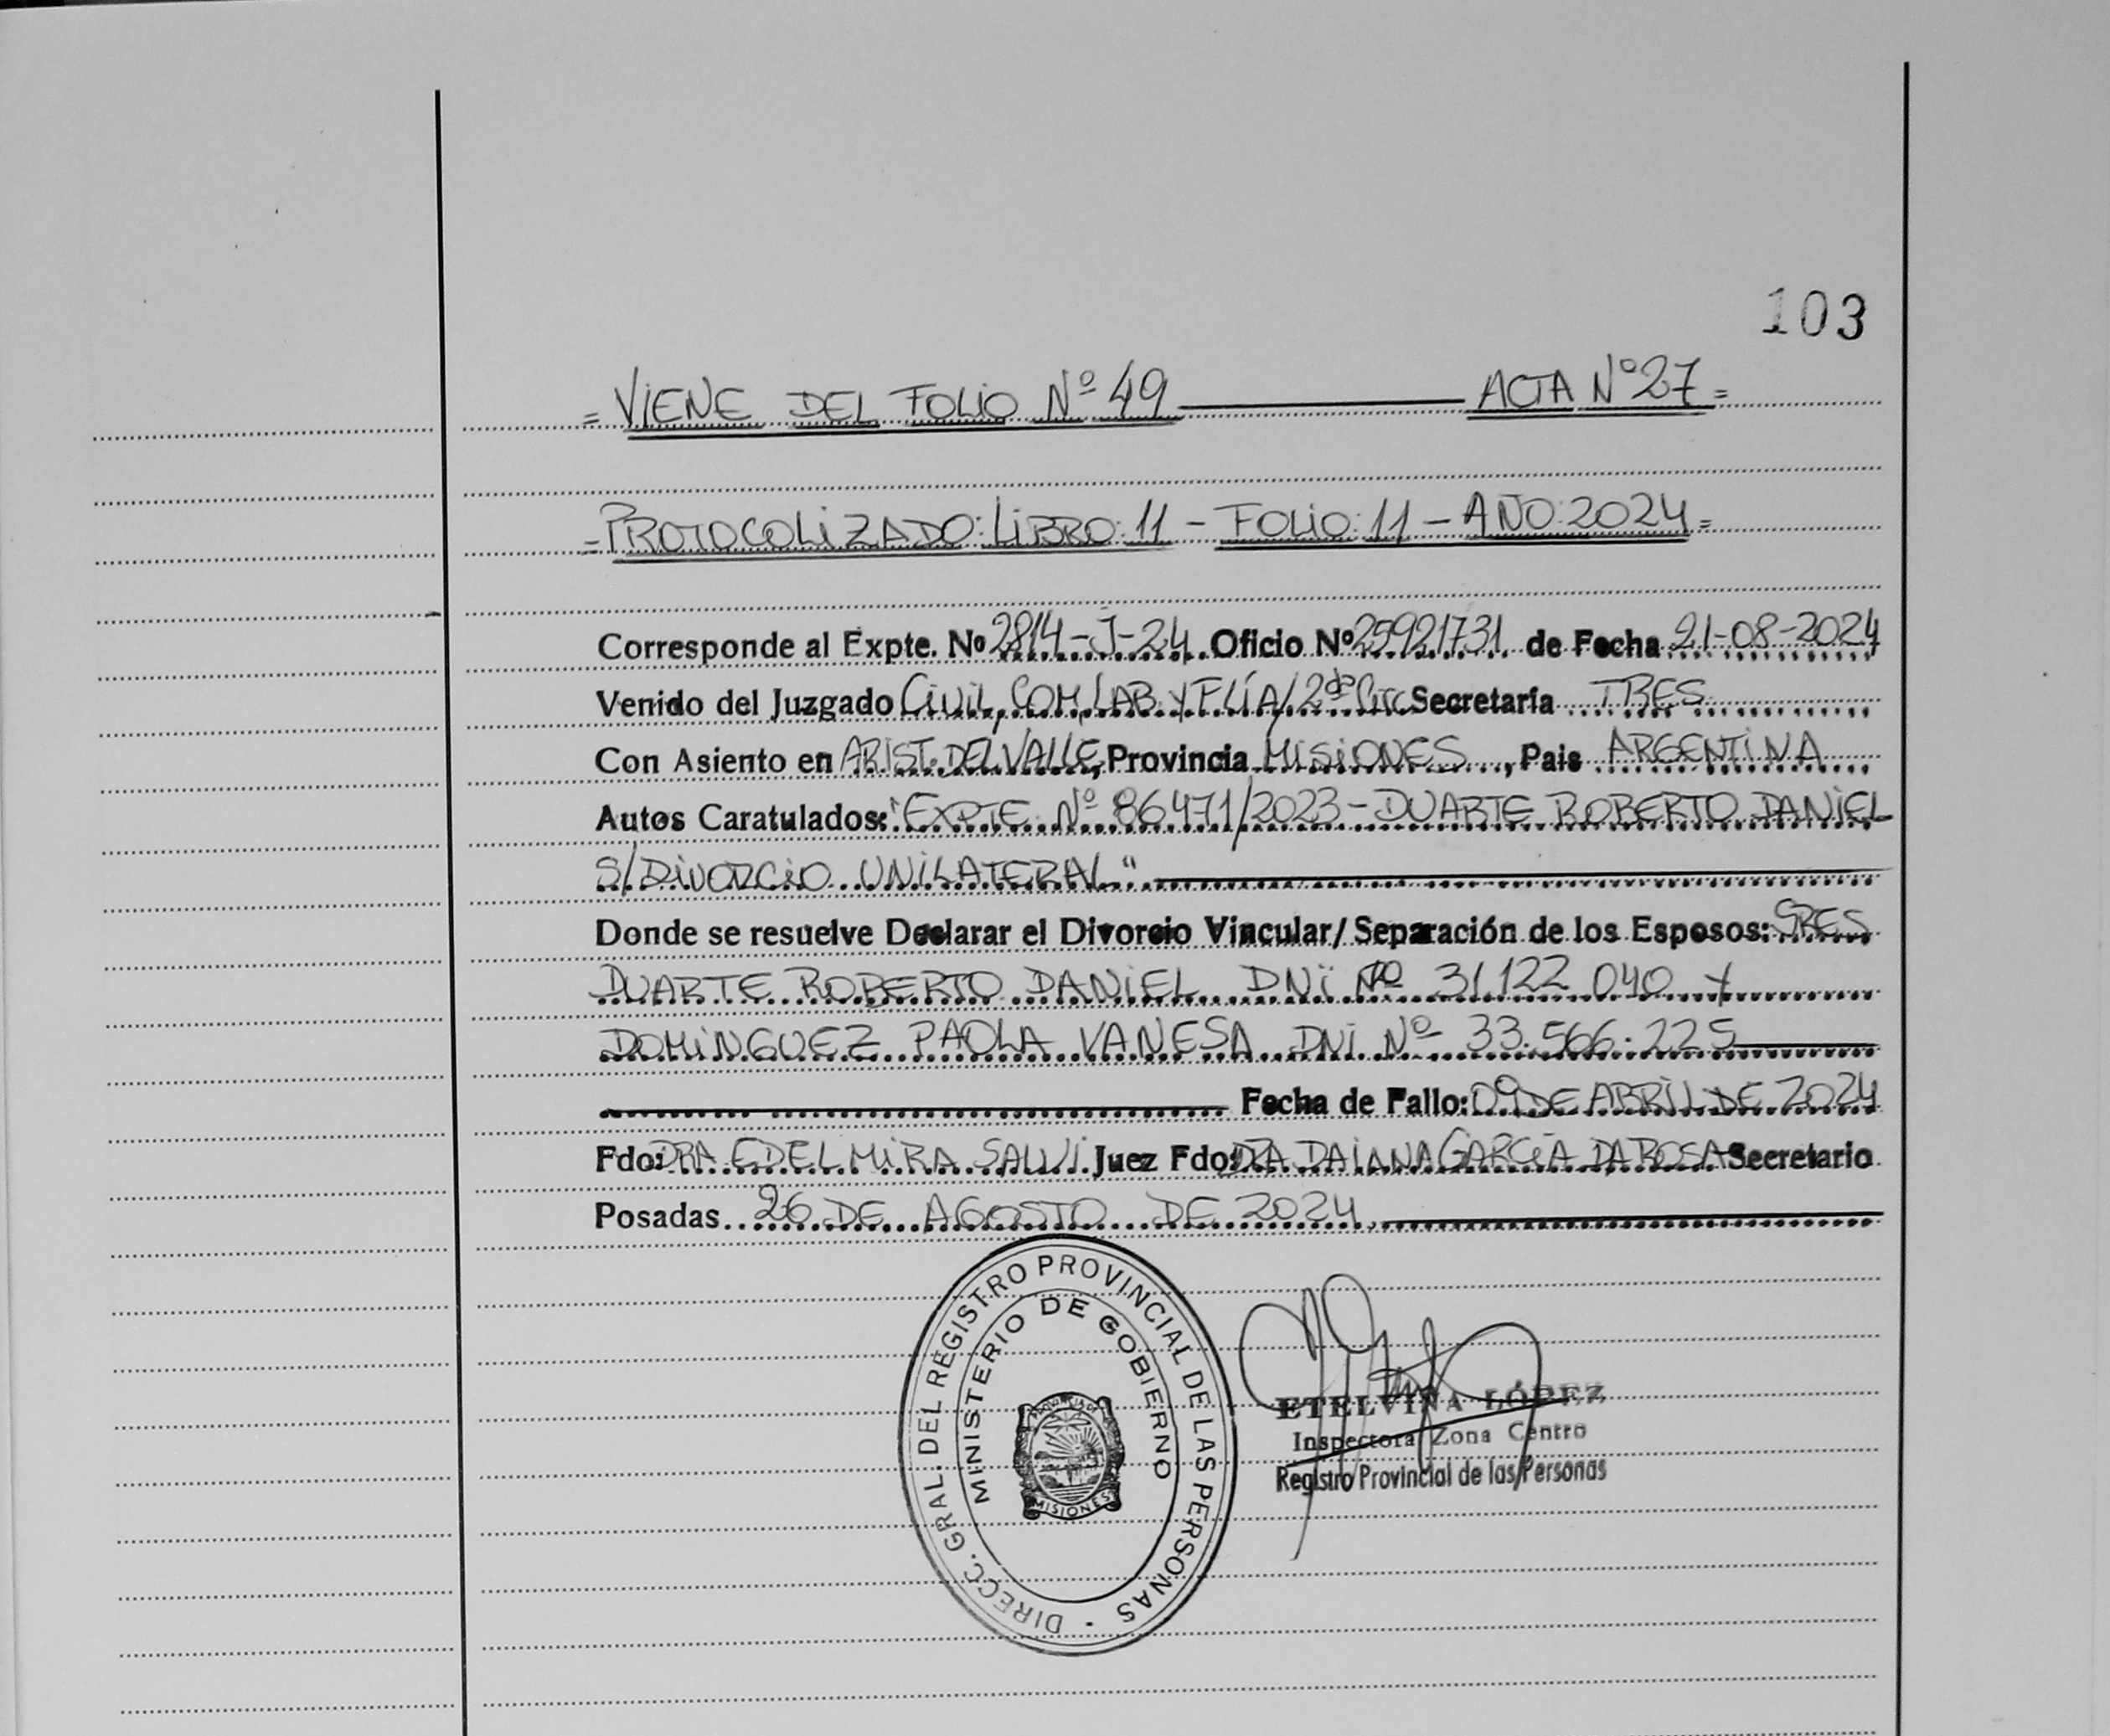 103
= VIENE DEL FOLIO Nº 49 ACTA Nº 27 =
= PROTOCOLIZADO: LIBRO: 11 - FOLIO: 11 - AÑO: 2024 =
Corresponde al Expte. Nº 2814-J-24 Oficio Nº 25921731 de Fecha 21-08-2024
Venido del Juzgado CIVIL, COM, LAB y FLÍA/2da Circ Secretaría TRES
Con Asiento en ARIST. DEL VALLE, Provincia MISIONES, Pais ARGENTINA
Autos Caratulados: "EXPTE Nº 86471/2023 - DUARTE ROBERTO DANIEL
S/DIVORCIO UNILATERAL"
Donde se resuelve Declarar el Divorcio Vincular/Separación de los Esposos: SRES
DUARTE ROBERTO DANIEL DNI Nº 31.122.040 y
DOMINGUEZ PAOLA VANESA DNI Nº 33.566.225
Fecha de Fallo: 09 DE ABRIL DE 2024
Fdo: DRA EDELMIRA SALVI Juez Fdo: DRA DAIANA GARCÍA DA ROSA Secretario
Posadas 26 DE AGOSTO DE 2024
DIRECC. GRAL. DEL REGISTRO PROVINCIAL DE LAS PERSONAS
MINISTERIO DE GOBIERNO
PROVINCIA DE
MISIONES
ETELVINA LÓPEZ
Inspectora Zona Centro
Registro Provincial de las Personas